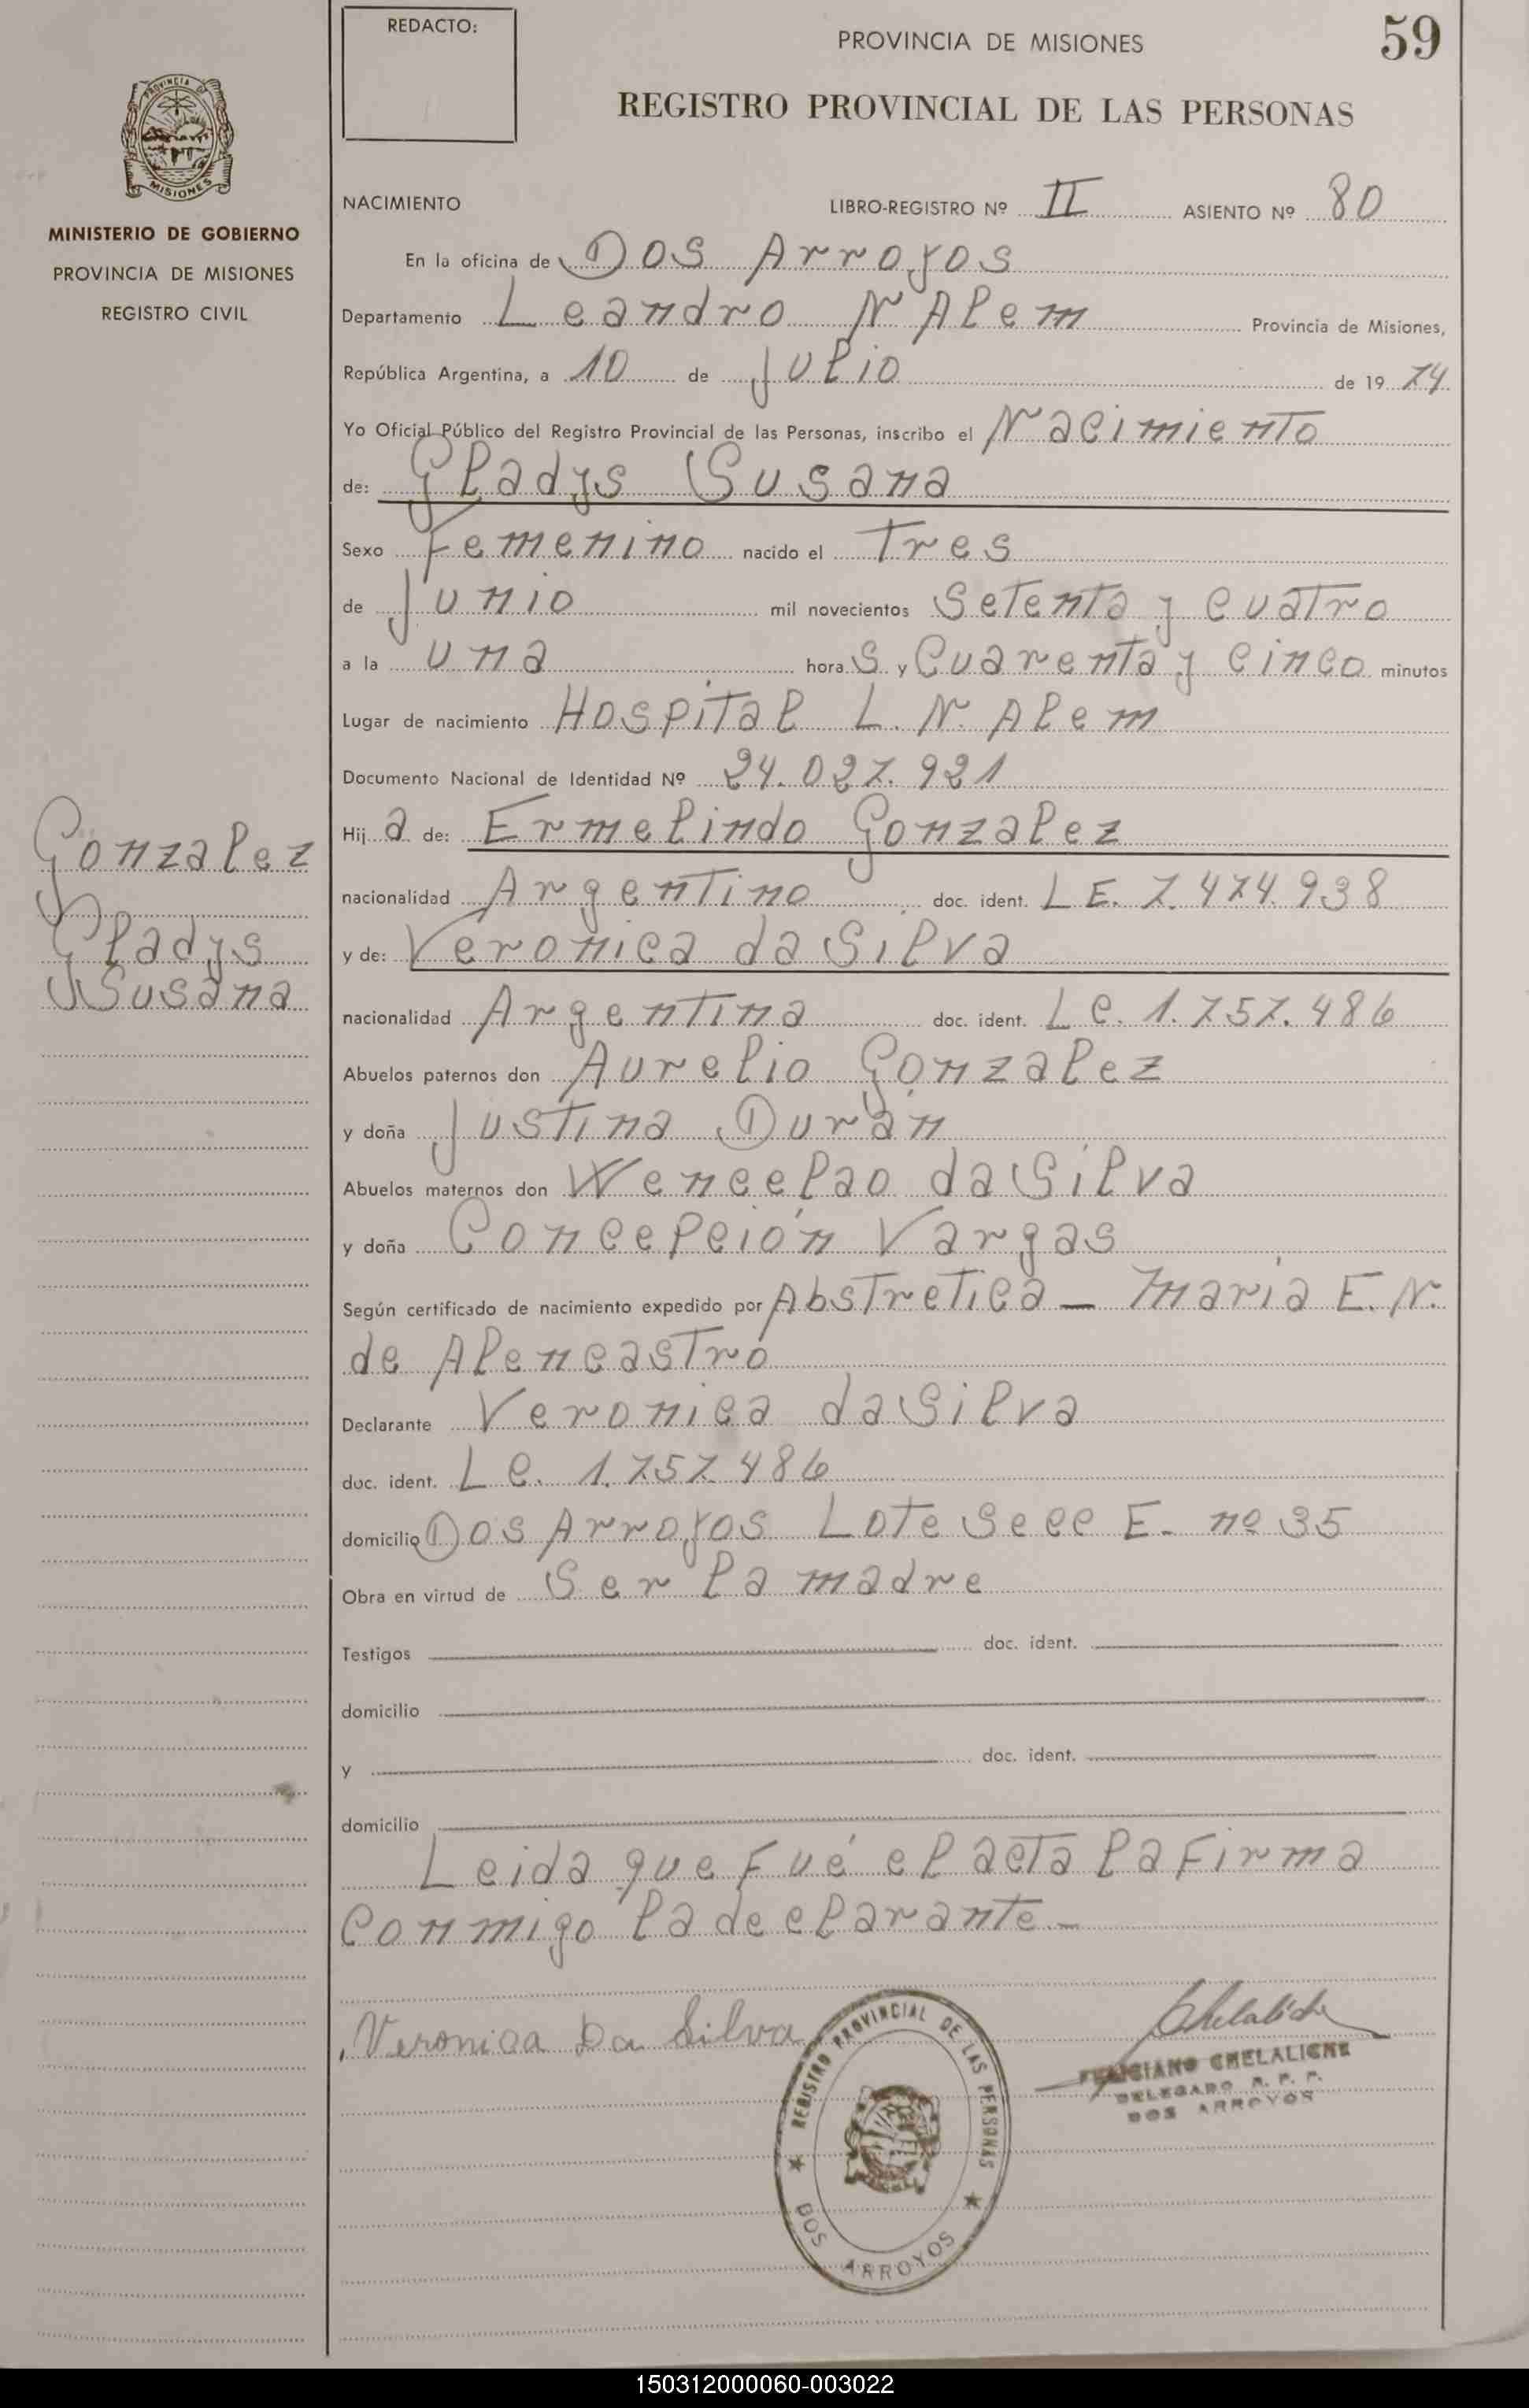 REDACTO:
PROVINCIA DE MISIONES
59
REGISTRO PROVINCIAL DE LAS PERSONAS
PROVINCIA DE
MISIONES
MINISTERIO DE GOBIERNO
PROVINCIA DE MISIONES
REGISTRO CIVIL
NACIMIENTO LIBRO-REGISTRO Nº II ASIENTO Nº 80
En la oficina de Dos Arroyos
Departamento Leandro N Alem Provincia de Misiones,
República Argentina, a 10 de Julio de 19 74
Yo Oficial Público del Registro Provincial de las Personas, inscribo el Nacimiento
de: Gladys Susana
Sexo Femenino nacido el Tres
de Junio mil novecientos Setenta y cuatro
a la una hora s y Cuarenta y cinco minutos
Lugar de nacimiento Hospital L. N. Alem
Documento Nacional de Identidad Nº 24.027.921
Hij a de: Ermelindo Gonzalez
nacionalidad Argentino doc. ident. L E. 7.474.938
y de: Veronica da Silva
nacionalidad Argentina doc. ident. L c. 1.757.486
Abuelos paternos don Aurelio Gonzalez
y doña Justina Durán
Abuelos maternos don Wencelao da Silva
y doña Concepción Vargas
Según certificado de nacimiento expedido por Abstretica - Maria E. N.
de Alencastro
Declarante Veronica da Silva
doc. ident. L c. 1.757.486
domicilio Dos Arroyos Lote Secc E. nº 35
Obra en virtud de Ser la madre
Testigos doc. ident.
domicilio
y doc. ident.
domicilio
Leida que Fué el acta la Firma
Conmigo la declarante.-
Gonzalez
Gladys
Susana
Veronica Da Silva
Chelaliche
FELICIANO CHELALICHE
DELEGADO R. P. P.
DOS ARROYOS
REGISTRO PROVINCIAL DE LAS PERSONAS
DOS ARROYOS
150312000060-003022